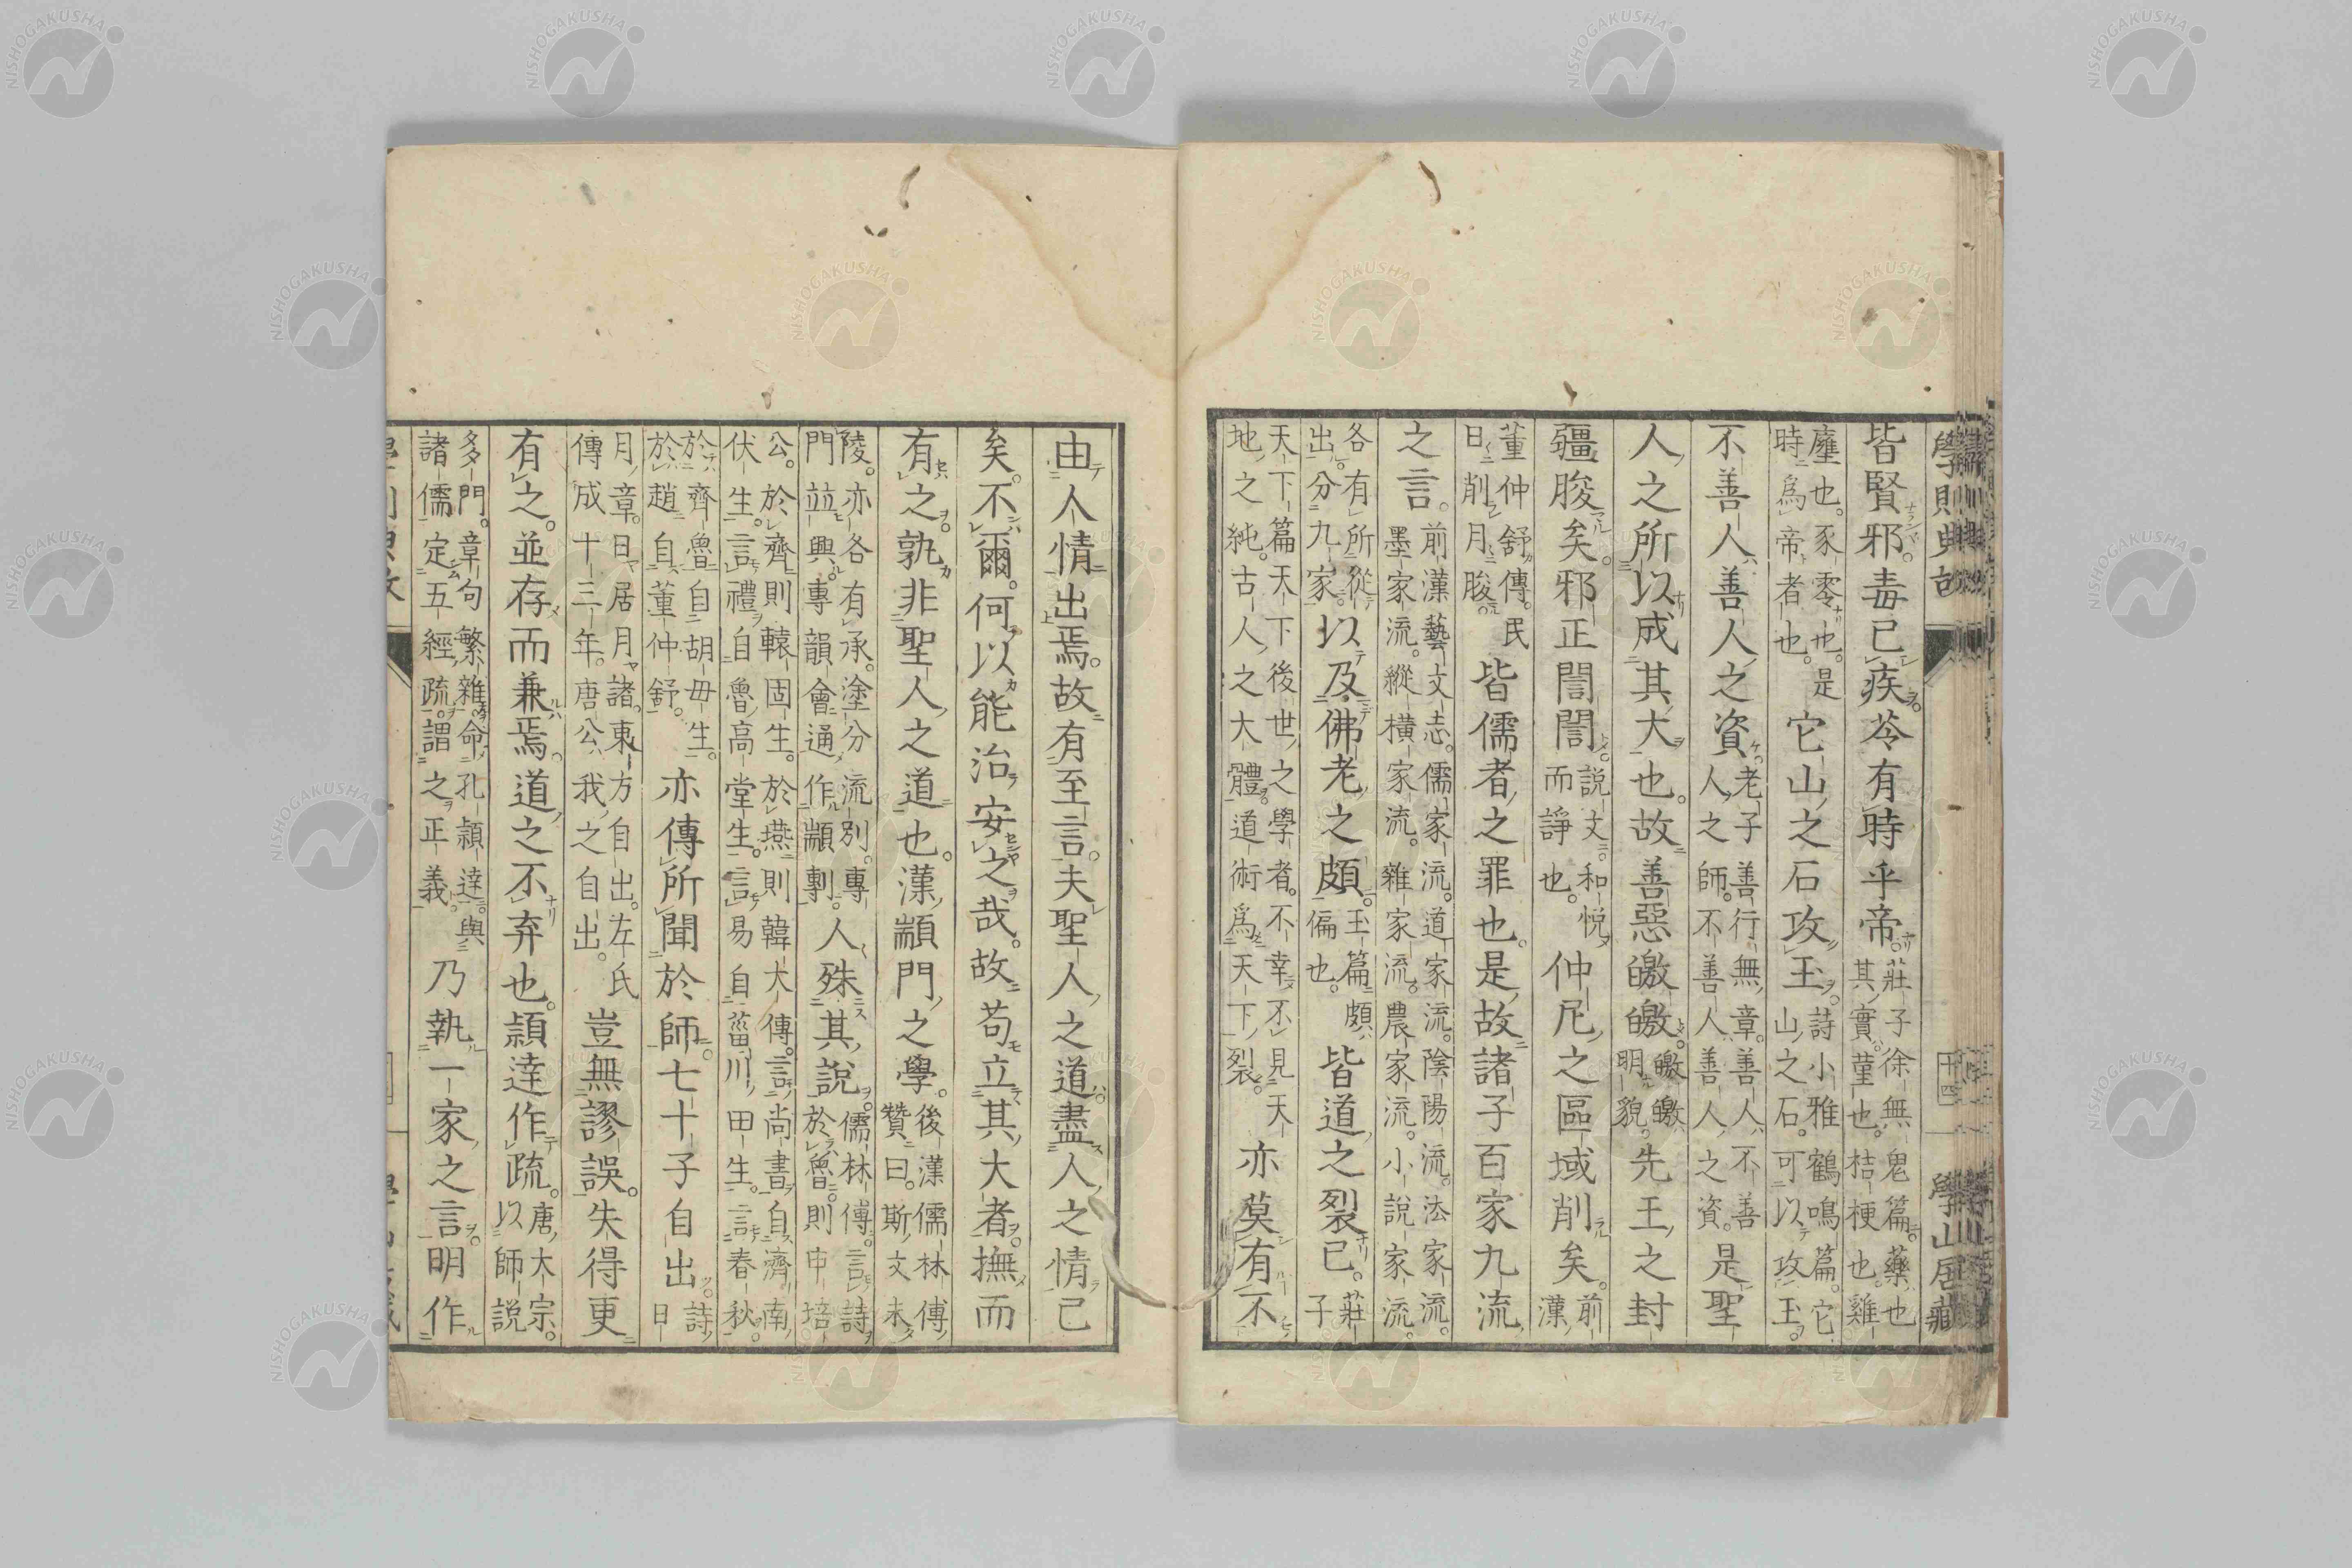 皆賢邪毒已疾苓有時乎帝莊子徐無鬼篇藥也其實菫也桔梗也雞
廱也豕零也是時爲帝者也它山之石攻玉詩小雅鶴鳴篇它山之石可以攻玉
不善人善人之資老子善行無章善人不善人之師不善人善人之資是聖
人之所以成其大也故善惡皦皦皦皦明貌先王之封
疆朘矣邪正誾誾說文和悅而諍也仲尼之區域削矣前漢
董仲舒傳民日削月朘皆儒者之罪也是故諸子百家九流
之言前漢藝文志儒家流道家流陰陽流法家流墨家流縱橫家流雜家流農家流小說家流
各有所從出分九家以及佛老之頗玉篇頗偏也皆道之裂已莊子
天下篇天下後世之學者不幸不見天地之純古人之大體道術爲天下裂亦莫有不
由人情出焉故有至言夫聖人之道盡人之情已
矣不爾何以能治安之哉故苟立其大者撫而
有之孰非聖人之道也漢顓門之學後漢儒林傳贊曰斯文未
陵亦各有承塗分流別專門竝興專韻會通作顓剸人殊其說儒林傳言詩於魯則申培
公於齊則轅固生於燕則韓大傳言尚書自濟南伏生言禮自魯高堂生言易自菑川田生言春秋
於齊魯自胡毋生於趙自董仲舒亦傳所聞於師七十子自出詩日
月章日居月諸東方自出左氏傳成十三年唐公我之自出豈無謬誤失得更
有之並存而兼焉道之不弃也頴達作疏唐大宗以師說
多門章句繁雜命孔頴達與諸儒定五經疏謂之正義乃執一家之言明作
學則典故
十四
學山居藏
NISHOGAKUSHA